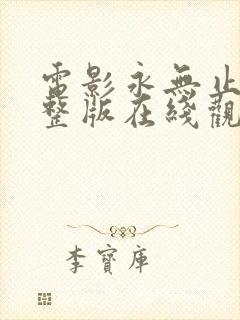 電影永無止
整版在綫觀
李寶庫